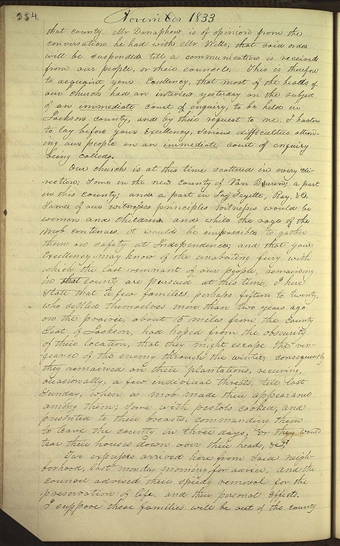 254.
November 1833
that county. Mr Donaphon is of opinion from the
conversation he had with Mr Wills, that said order
will be suspended till a communication is received
from our people, or their counsels. This is therefore
to acquaint your Excellency, that most of the heads of
our church had an interview yesterday on the subject
of an immediate court of enquiry, to be held in
Jackson county, and by their request to me. I hasten
to lay before your Excellency, serious difficulties attend-
ing our people on an immediate court of enquiry
being called.
Our church is at this time scattered in every di-
rection; Some in the new county of Van Buren; a part
in this county; and a part in La Fayette, Ray, &c.
Some of our principles witnesses would be
women and children and while the rage of the
mob continues, it would be impossible to gather
them in safety at Independence; and that your
Excellency may know of the unabating fury with
which the last remnant of our people, remaining
in that county are pursued at this time, I here
state that a few families, perhaps fifteen to twenty,
who settled themselves more than two years ago
on the prairie, about 15 miles from the County
Seat of Jackson, had hoped from the obscurity
of their location, that they might escape the ven-
geance of the enemy through the winter, consequently
they remained on their plantations, receiving,
occasionally, a few individual threats, till last
Sunday, when a mob made their appearance
among them; some with pistols cocked, and
presented to their breasts, commanding them
to leave the county in three days, or they would
tear their houses down over their heads, &c.
Two expresses arrived here from said neigh-
borhood, last monday, morning, for advice, and the
council advised their speedy removal for the
preservation of life, and their personal effects.
I suppose these families will be out of the county